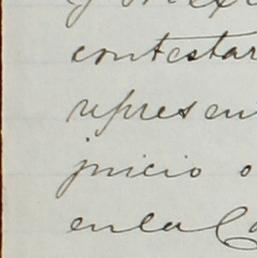 y Mexi
contestar
represen
juicio o
en la C